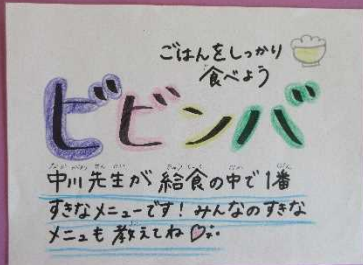 ごはんをしっかり
食べよう
ビビンバ
中川先生が給食の中で1番
すきなメニューです！みんなのすきな
メニューも教えてね♡